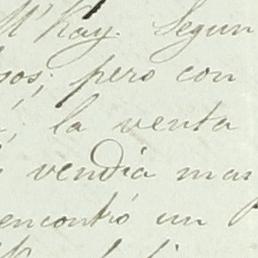 Mr Kay. Segun
pero con
la venta
vendia mas
encontró un